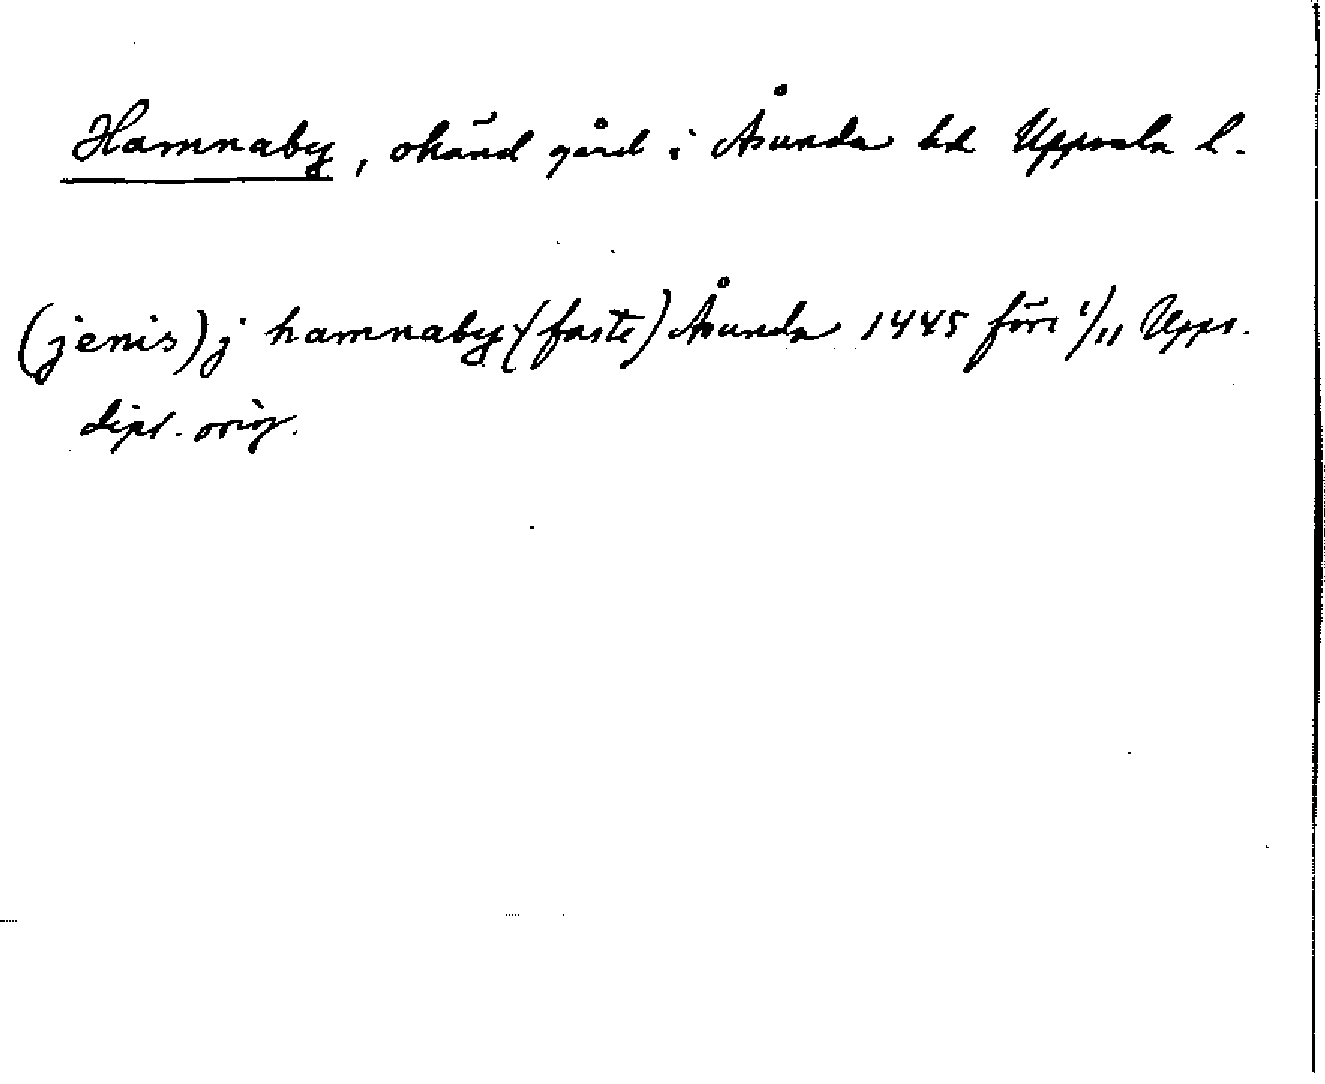 Hamnaby, okänd gård i Åsunda hd Uppsala l.
(jenis) j hamnaby (faste) Åsunda 1445 före 1/11 Upps.
dipl. orig.